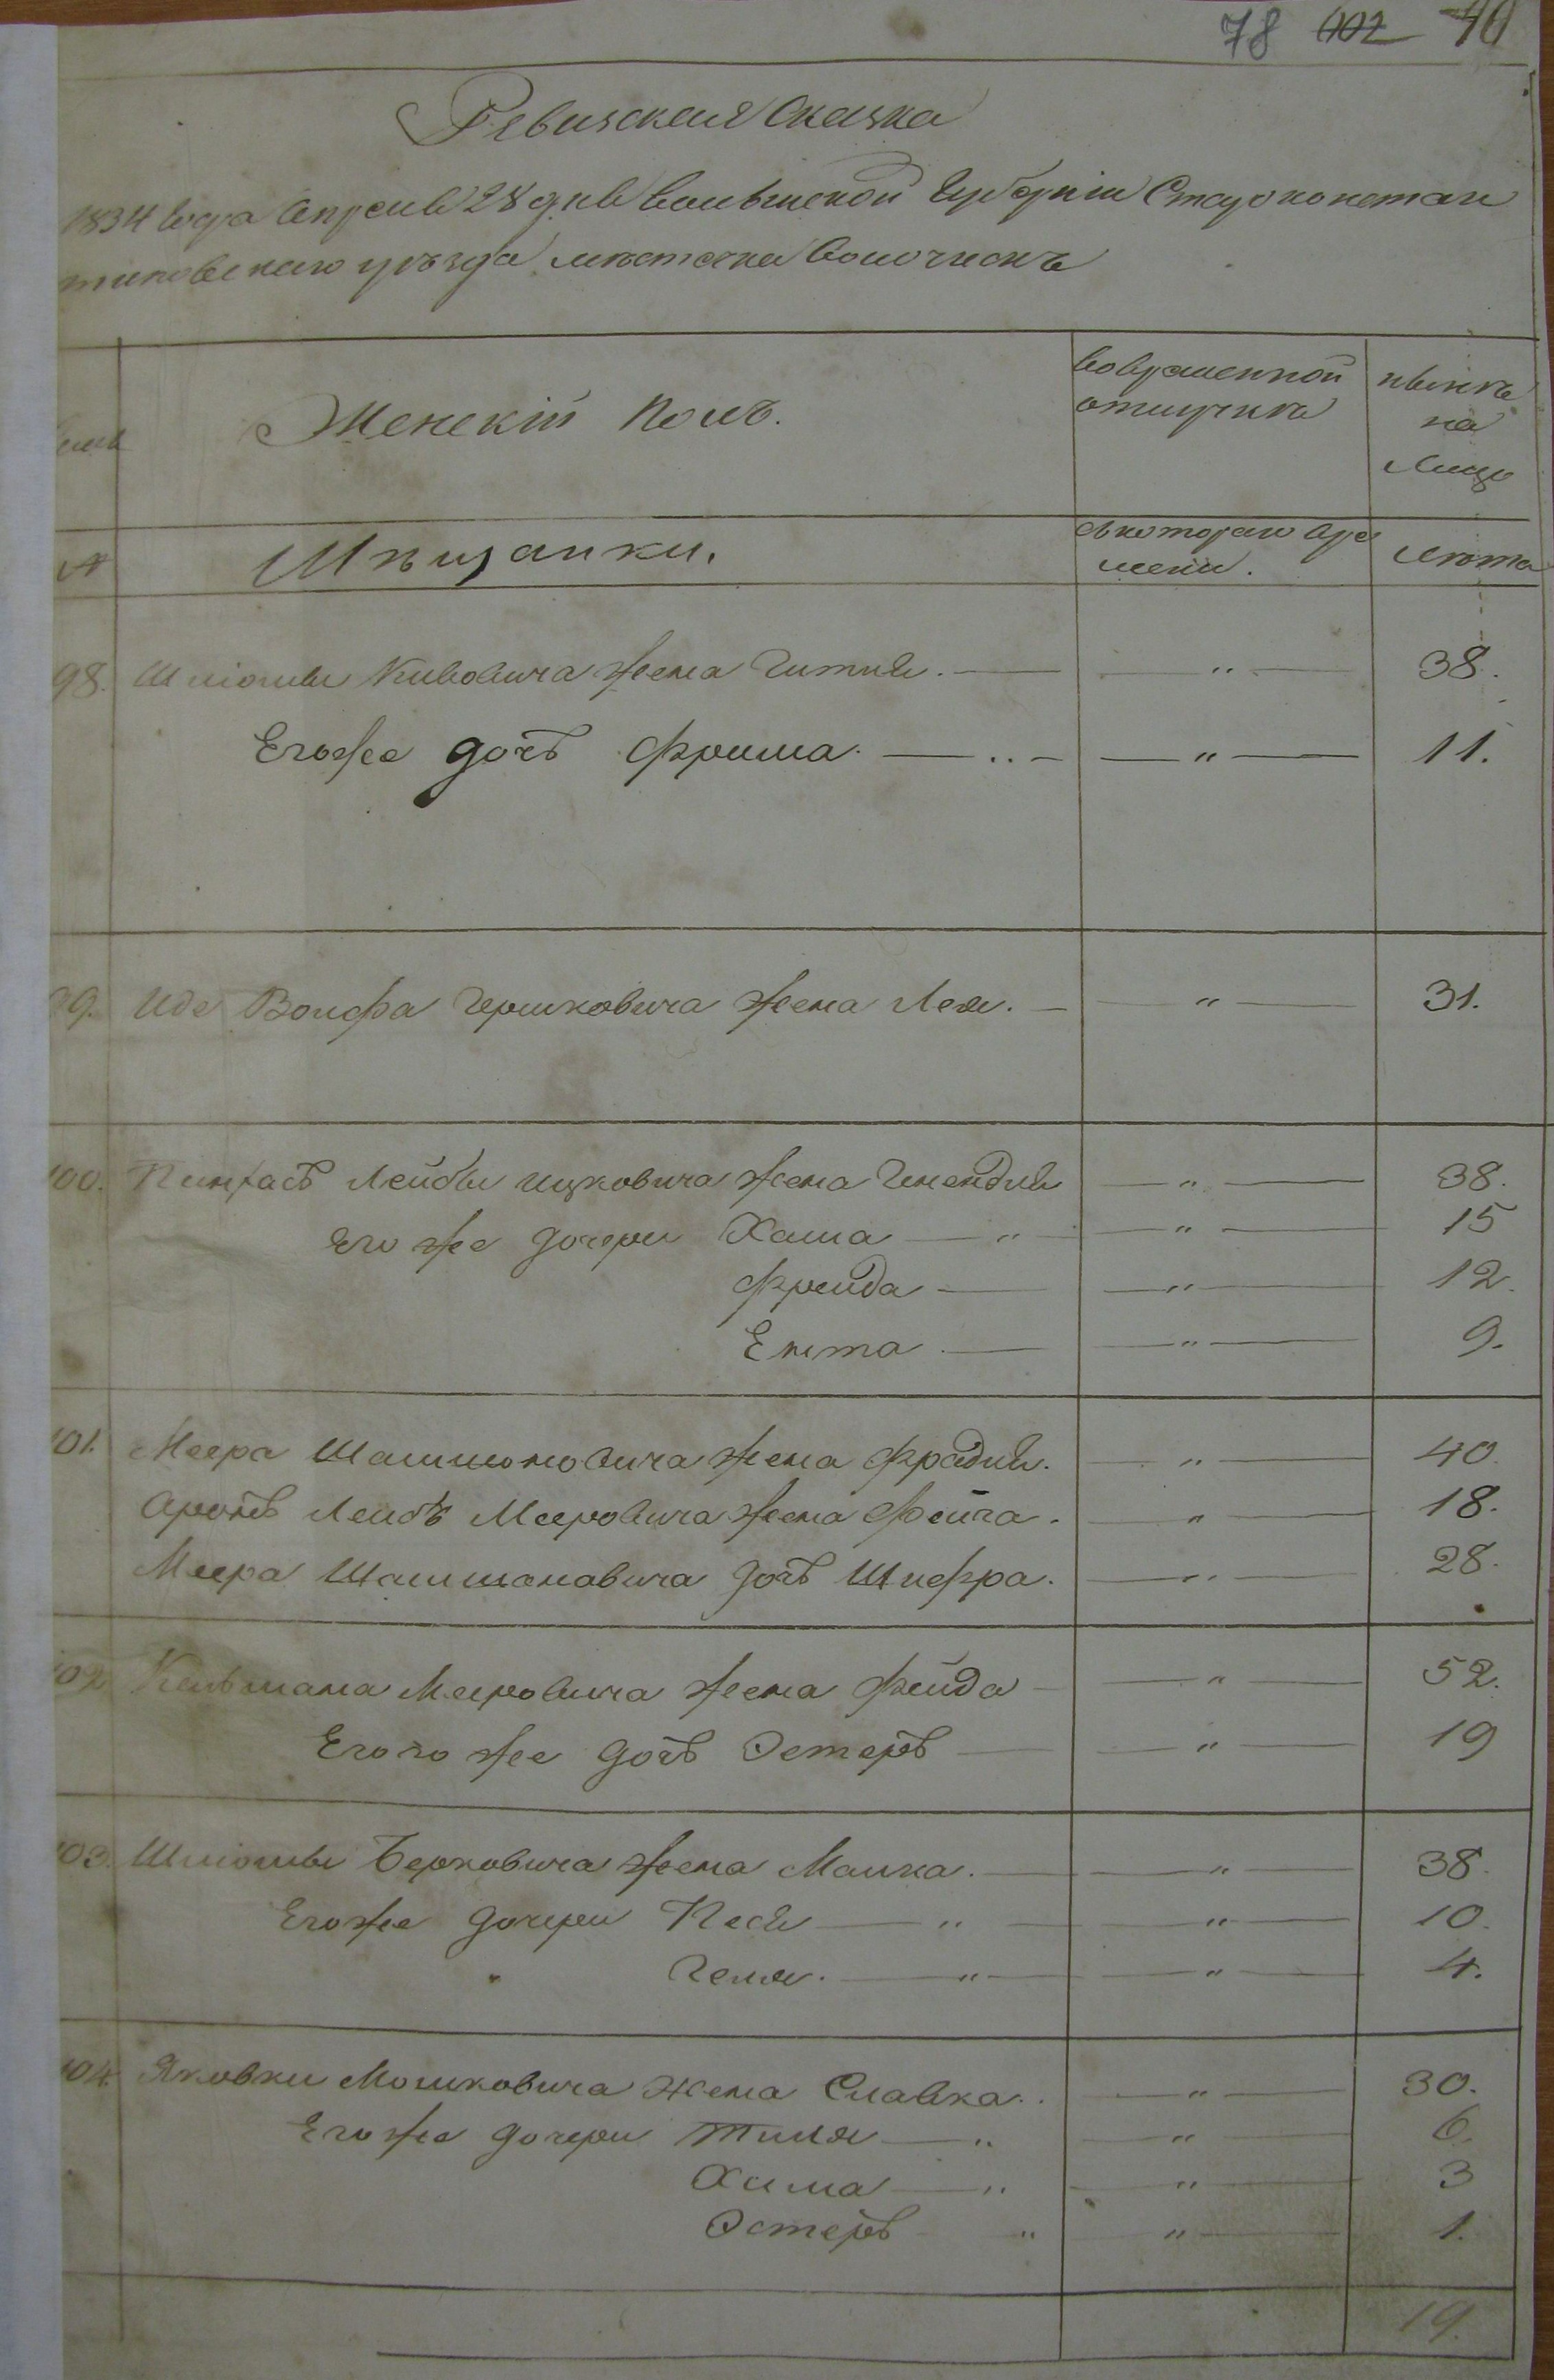 78 102 40
Ревизская Сказка
1834 Года Апреля 28 дня Волынской Губерніи Староконстан
тиновскаго уѣзда мѣстечка Волочискъ
Женскій полъ.
вовременной
отлучкѣ
нынѣ
на
Лицо
Мѣщанки.
съкотораго вре
мени.
Лѣта
98. Шліомы Кивовича жена Гитля. — " — 38.
Егоже дочь Фрима. — " — 11.
99. Иде Волфа Гершковича жена Лея. — " — 31.
100. Пинхасъ Лейбы Ицковича жена Гнендля — " — 38.
Его же дочери Хаша — " — 15
Фрейда — " — 12.
Ента — " — 9.
101. Меера Шашмоновича жена Фрадля. — " — 40.
Аронъ Лейбъ Мееровича жена Фейга. — " — 18.
Меера Шашмоновича дочь Шифра. — " — 28.
102. Кельмана Мееровича жена Фейда — " — 52.
Егого же дочь Эстеръ — " — 19
103. Шліомы Берковича жена Малка. — " — 38.
Егоже дочери Песя — " — 10.
Геля. — " — 4.
104. Яковки Мошковича жена Славка. — " — 30.
Егоже дочери Тиля — " — 6.
Хима — " — 3
Эстеръ " — 1.
19.